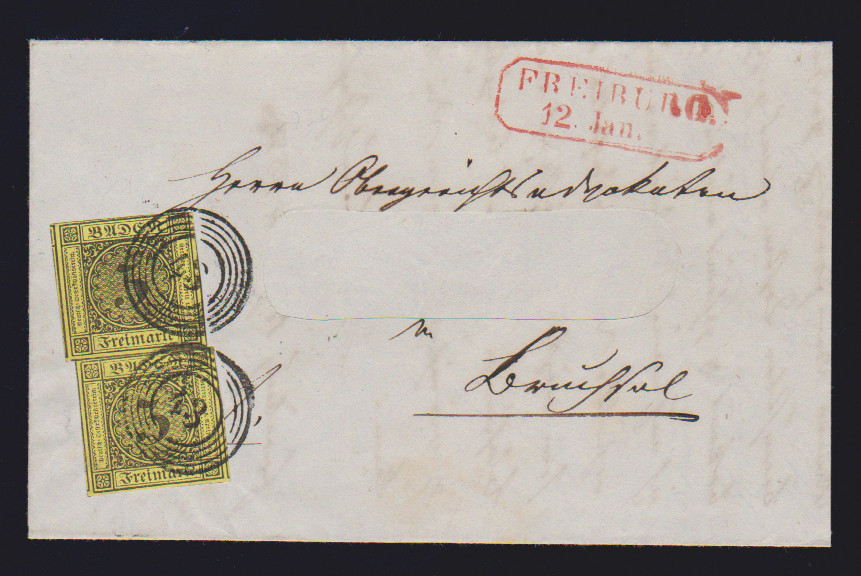 FREIBURG.
12. Jan.
Herrn Obergerichtsadvokaten
in
Bruchsal
BADEN
Freimarke
BADEN
Freimarke